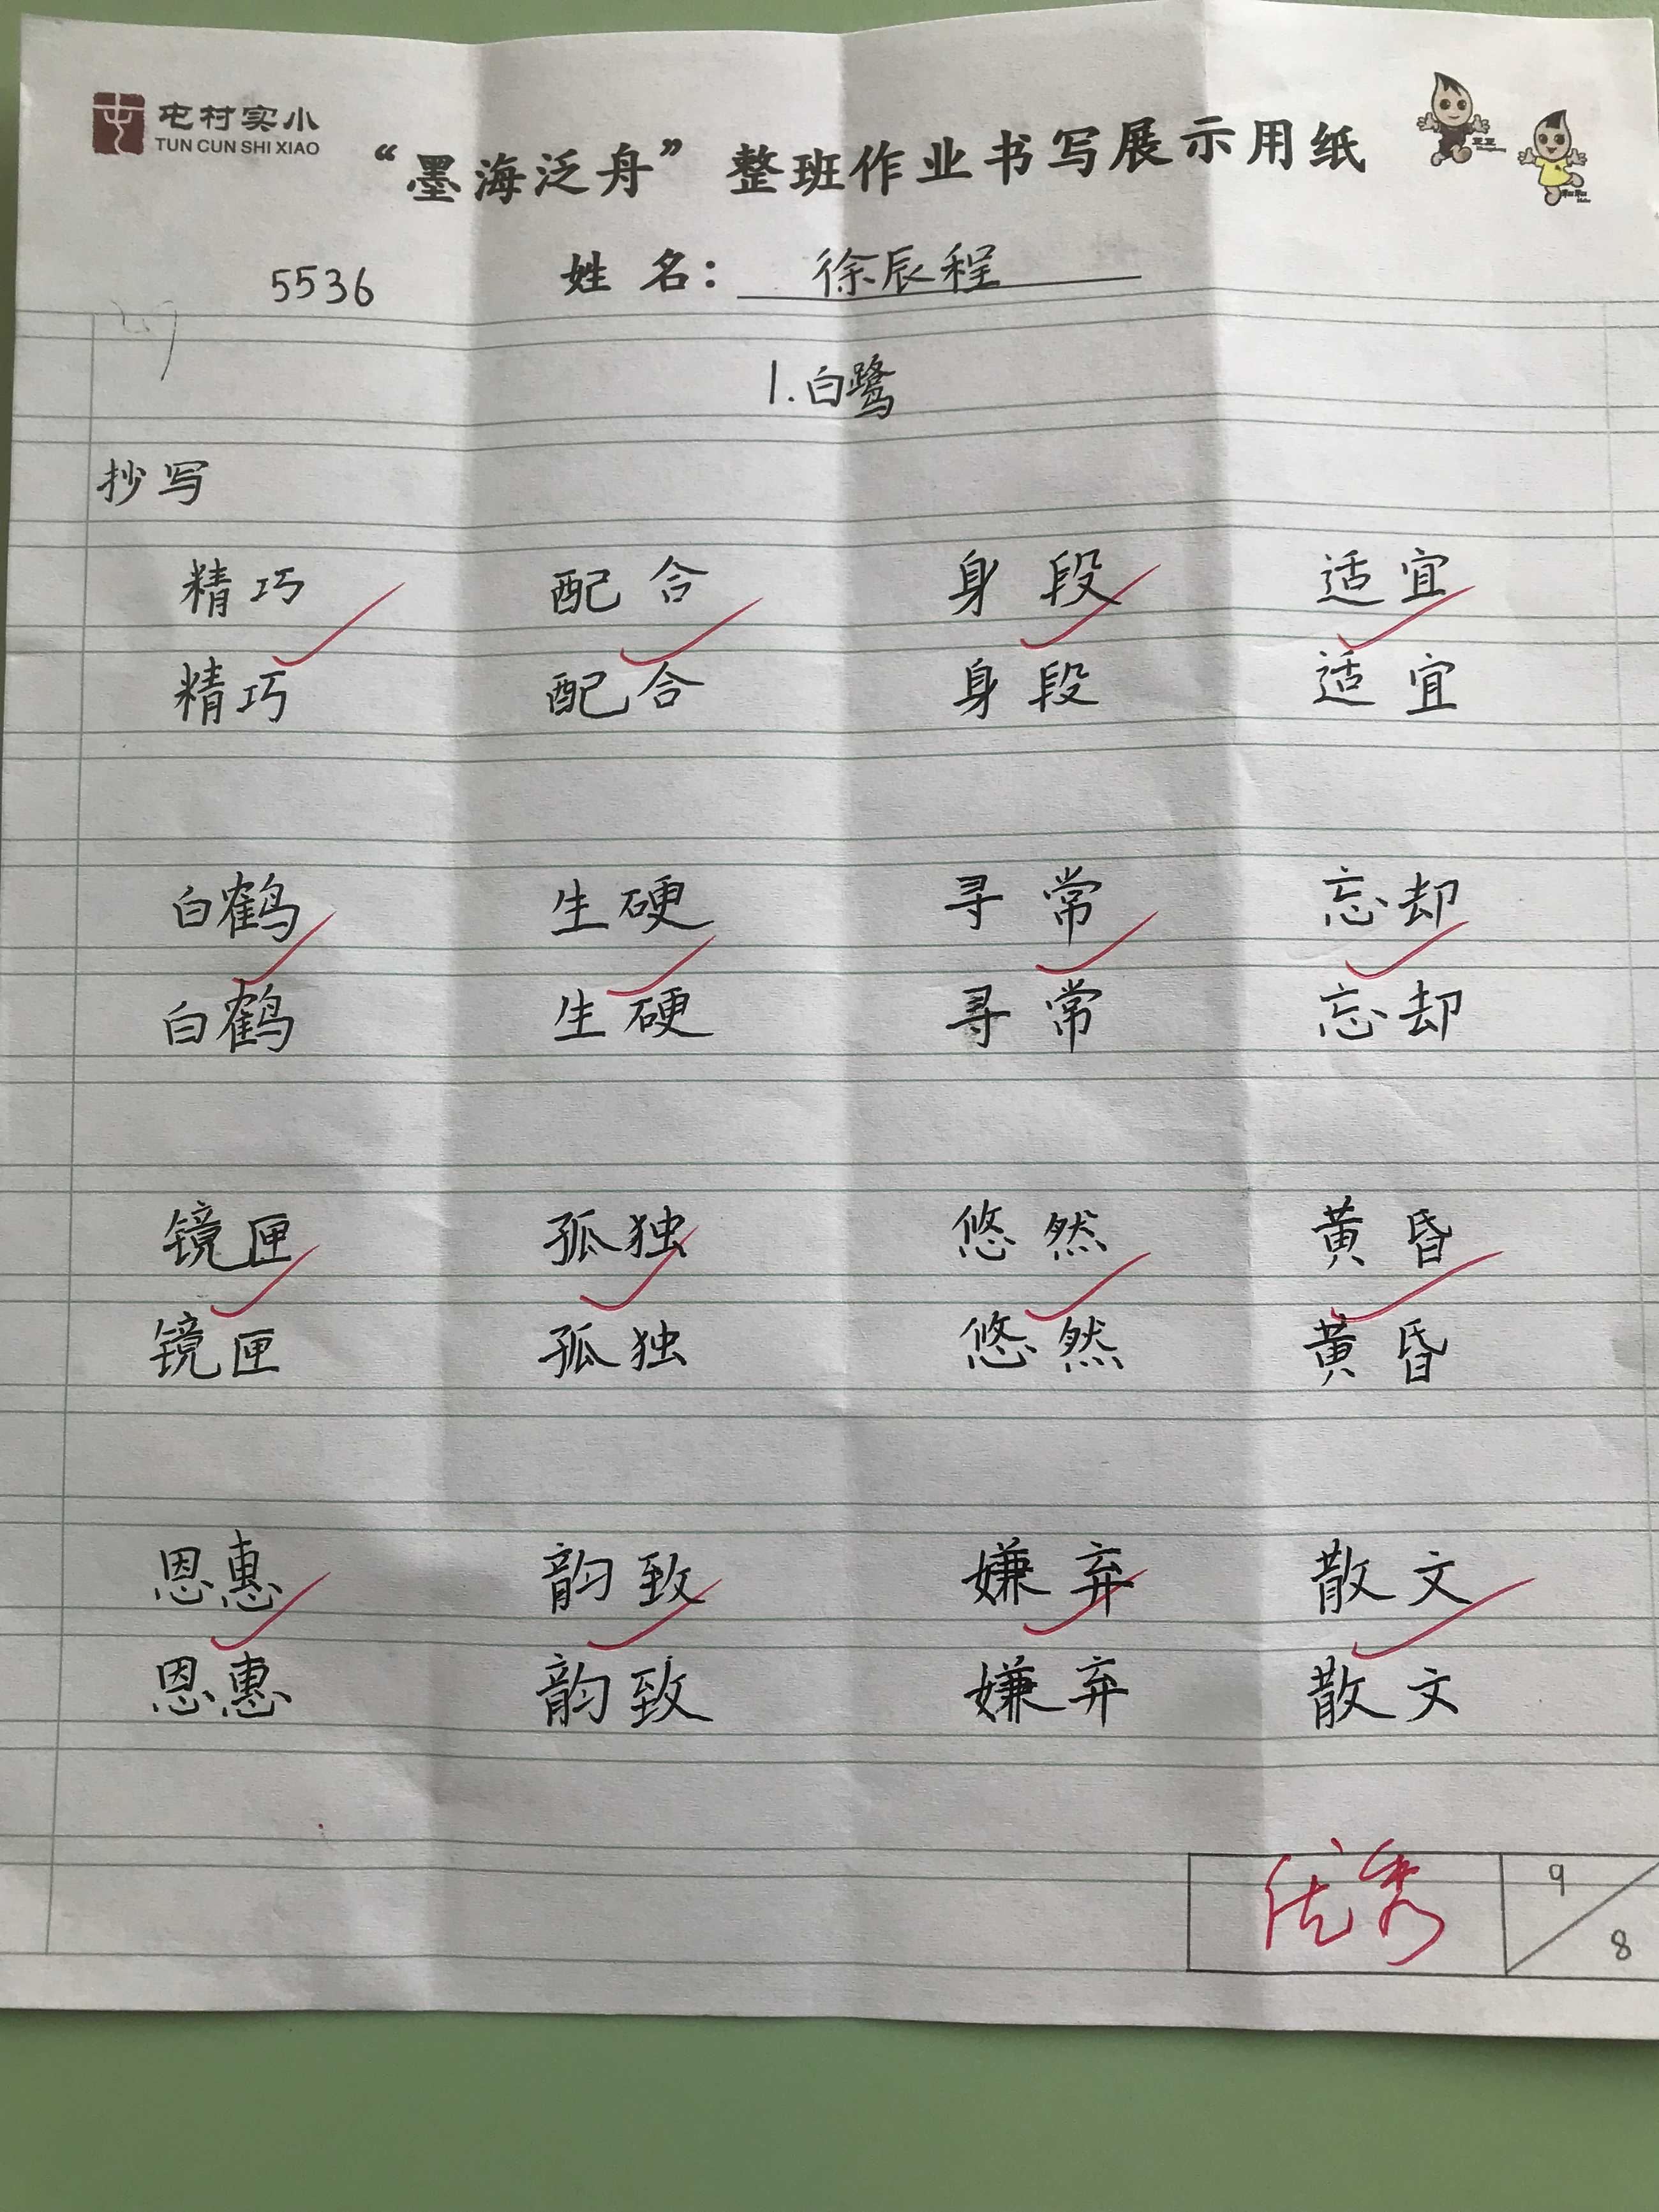 屯村实小
TUN CUN SHI XIAO
“墨海泛舟”整班作业书写展示用纸
5536 姓名：徐辰程
1.白鹭
抄写
精巧 配合 身段 适宜
精巧 配合 身段 适宜
白鹤 生硬 寻常 忘却
白鹤 生硬 寻常 忘却
镜匣 孤独 悠然 黄昏
镜匣 孤独 悠然 黄昏
恩惠 韵致 嫌弃 散文
恩惠 韵致 嫌弃 散文
优秀 9 8